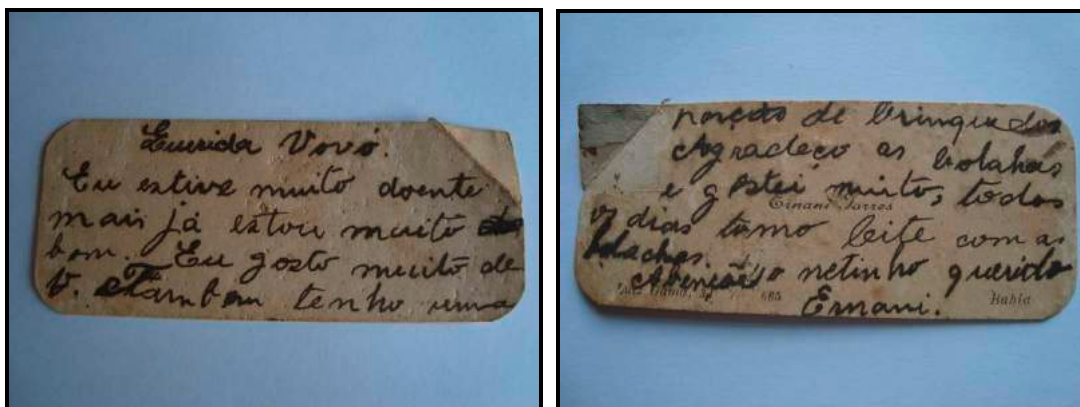 Querida Vovó.
Eu estive muito doente
mais já estou muito
bom. Eu gosto muito de
v. Tambem tenho uma
porção de brinquedos
Agradeço as bolahas
e gostei muito, todos
Ernani Torres
os dias tomo leite com as
bolachas.
A benção do netinho querido
685
Bahia
Ernani.